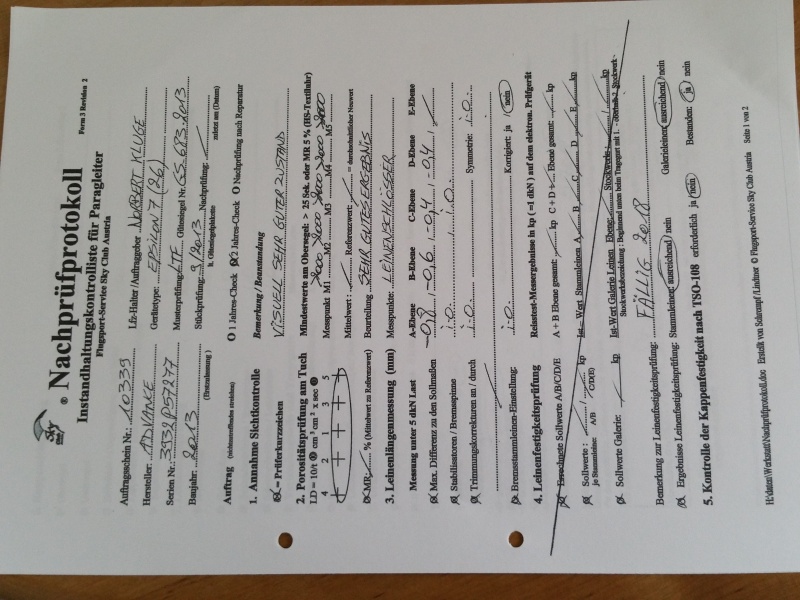 Sky
® Nachprüfprotokoll
Form 3 Revision 2
Instandhaltungskontrolliste für Paragleiter
Flugsport-Service Sky Club Austria
Auftragsschein Nr.: 10339 Lfz-Halter / Auftraggeber NORBERT KLUGE
Hersteller: ADVANCE Gerätetype: EPSILON 7 (26)
Serien Nr.: Musterprüfung: LTF Gütesiegel Nr.
Baujahr: 2013 Stückprüfung: 9/2013 Nachprüfung:
(Erstzulassung) lt. Gütesiegelplakette zuletzt am (Datum)
Auftrag (nichtzutreffendes streichen) O 1 Jahres-Check 2 Jahres-Check O Nachprüfung nach Reparatur
1. Annahme Sichtkontrolle Bemerkung / Beanstandung
= Prüferkurzzeichen VISUELL SEHR GUTER ZUSTAND
2. Porositätsprüfung am Tuch Mindestwerte am Obersegel: > 25 Sek. oder MR 5 % (HS-Textiluhr)
LD = 10/t cm³ cm² x sec
4 2 1 3 5 Messpunkt M1 M2 M3 M4 M5
Mittelwert: Referenzwert: = durchschnittlicher Neuwert
MR: % (Mittelwert zu Referenzwert) Beurteilung SEHR GUTES ERGEBNIS
3. Leinenlängenmessung (mm) Messpunkte: LEINENSCHLÖSSER
Messung unter 5 dkN Last A-Ebene B-Ebene C-Ebene D-Ebene E-Ebene
Max. Differenz zu den Sollmaßen -0,6 -0,4 -0,4
Stabilisatoren / Bremsspinne i.O. i.O.
Trimmungskorrekturen an / durch i.O. Symmetrie: i.O.
Bremsstammleinen-Einstellung: i.O. Korrigiert: ja / nein
4. Leinenfestigkeitsprüfung Reisstest-Messergebnisse in kp (=1 dkN) auf dem elektron. Prüfgerät
Errechnete Sollwerte A/B/C/D/E A + B Ebene gesamt: kp C + D + Ebene gesamt: kp
Sollwerte: / kp Ist – Wert Stammleinen A B C D E kp
je Stammleine: A/B C/D(E)
Sollwerte Galerie: kp Ist-Wert Galerie Leinen Ebene: Stockwerke: / kp
Bemerkung zur Leinenfestigkeitsprüfung: FÄLLIG 2018
Ergebnisse Leinenfestigkeitsprüfung: Stammleinen: ausreichend / nein Galerieleinen: ausreichend / nein
5. Kontrolle der Kappenfestigkeit nach TSO-108 erforderlich ja nein Bestanden: ja nein
H:\daten\Werkstatt\Nachprüfprotokoll.doc Erstellt von Schrempf /Lindtner © Flugsport-Service Sky Club Austria Seite 1 von 2